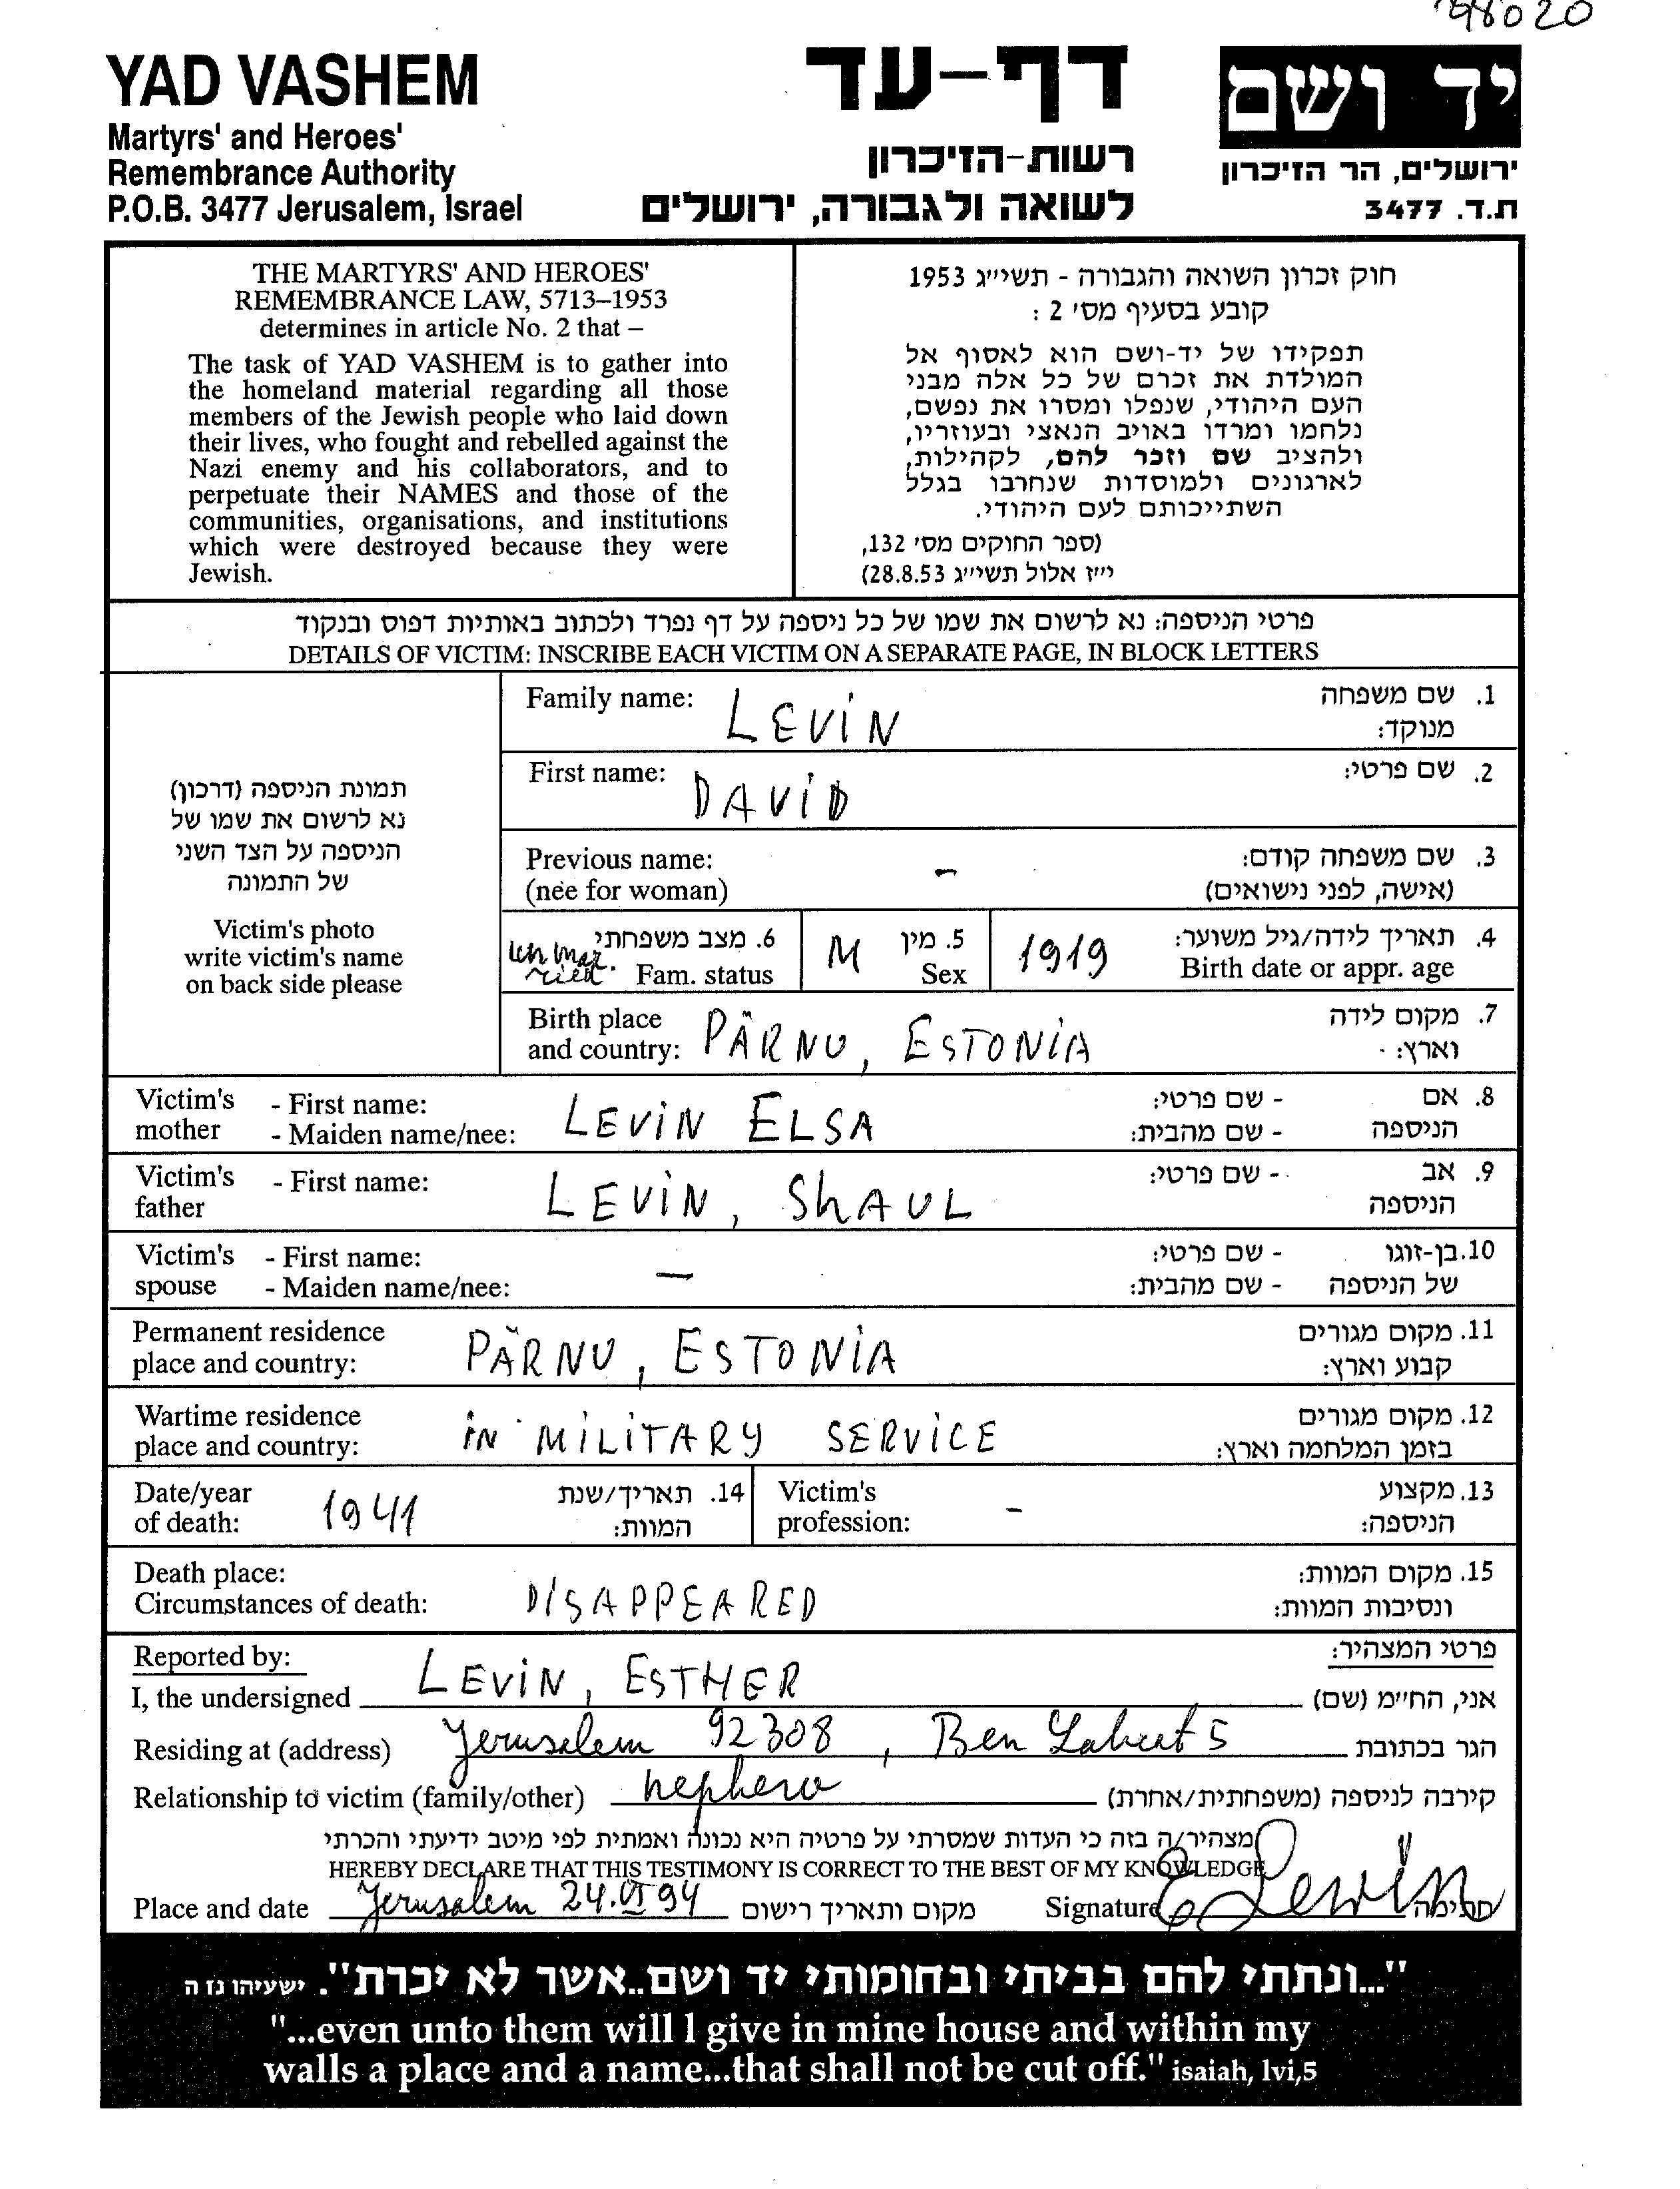 98020
YAD VASHEM
Martyrs' and Heroes'
Remembrance Authority
P.O.B. 3477 Jerusalem, Israel
דף-עד
רשות-הזיכרון
לשואה ולגבורה, ירושלים
יד ושם
ירושלים, הר הזיכרון
ת.ד. 3477
THE MARTYRS' AND HEROES'
REMEMBRANCE LAW, 5713–1953
determines in article No. 2 that –
The task of YAD VASHEM is to gather into
the homeland material regarding all those
members of the Jewish people who laid down
their lives, who fought and rebelled against the
Nazi enemy and his collaborators, and to
perpetuate their NAMES and those of the
communities, organisations, and institutions
which were destroyed because they were
Jewish.
חוק זכרון השואה והגבורה - תשי״ג 1953
קובע בסעיף מס׳ 2 :
תפקידו של יד-ושם הוא לאסוף אל
המולדת את זכרם של כל אלה מבני
העם היהודי, שנפלו ומסרו את נפשם,
נלחמו ומרדו באויב הנאצי ובעוזריו,
ולהציב שם וזכר להם, לקהילות,
לארגונים ולמוסדות שנחרבו בגלל
השתייכותם לעם היהודי.
(ספר החוקים מס׳ 132,
י״ז אלול תשי״ג 28.8.53)
פרטי הניספה: נא לרשום את שמו של כל ניספה על דף נפרד ולכתוב באותיות דפוס ובנקוד
DETAILS OF VICTIM: INSCRIBE EACH VICTIM ON A SEPARATE PAGE, IN BLOCK LETTERS
תמונת הניספה (דרכון)
נא לרשום את שמו של
הניספה על הצד השני
של התמונה
Victim's photo
write victim's name
on back side please
Family name: LEViN 1. שם משפחה
מנוקד:
First name: DAViD 2. שם פרטי:
Previous name: - 3. שם משפחה קודם:
(nee for woman) (אישה, לפני נישואים)
4. תאריך לידה/גיל משוער:
Birth date or appr. age 1919
5. מין
Sex M
6. מצב משפחתי
Fam. status
Birth place PÄRNU, ESTONiA 7. מקום לידה
and country: וארץ:
Victim's - First name: LEViN ELSA 8. אם - שם פרטי:
mother - Maiden name/nee: הניספה - שם מהבית:
Victim's - First name: LEViN, ShAUL 9. אב - שם פרטי:
father הניספה
Victim's - First name: — 10. בן-זוגו - שם פרטי:
spouse - Maiden name/nee: של הניספה - שם מהבית:
Permanent residence PÄRNU, ESTONiA 11. מקום מגורים
place and country: קבוע וארץ:
Wartime residence iN MiLiTARY SERViCE 12. מקום מגורים
place and country: בזמן המלחמה וארץ:
Date/year 1941 14. תאריך/שנת
of death: המוות:
Victim's - 13. מקצוע
profession: הניספה:
Death place: 15. מקום המוות:
Circumstances of death: DISAPPEARED ונסיבות המוות:
Reported by: פרטי המצהיר:
I, the undersigned LEViN, ESTHER אני, החי״מ (שם)
Residing at (address) Jerusalem 92308, Ben 5 הגר בכתובת
Relationship to victim (family/other) nephew קירבה לניספה (משפחתית/אחרת)
מצהיר/ה בזה כי העדות שמסרתי על פרטיה היא נכונה ואמתית לפי מיטב ידיעתי והכרתי
HEREBY DECLARE THAT THIS TESTIMONY IS CORRECT TO THE BEST OF MY KNOWLEDGE
Place and date Jerusalem 24.VI 94 מקום ותאריך רישום Signature E Lewin חתימה
"...ונתתי להם בביתי ובחומותי יד ושם..אשר לא יכרת". ישעיהו נז ה
"...even unto them will I give in mine house and within my
walls a place and a name...that shall not be cut off." isaiah, lvi,5